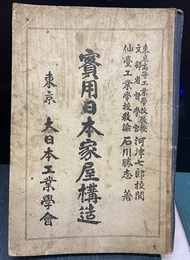 東京高等工業學校教授
文部省督學官 河津七郎校閲
仙臺工業學校敎諭 石川勝志 著
實用日本家屋構造
東京 大日本工業學會